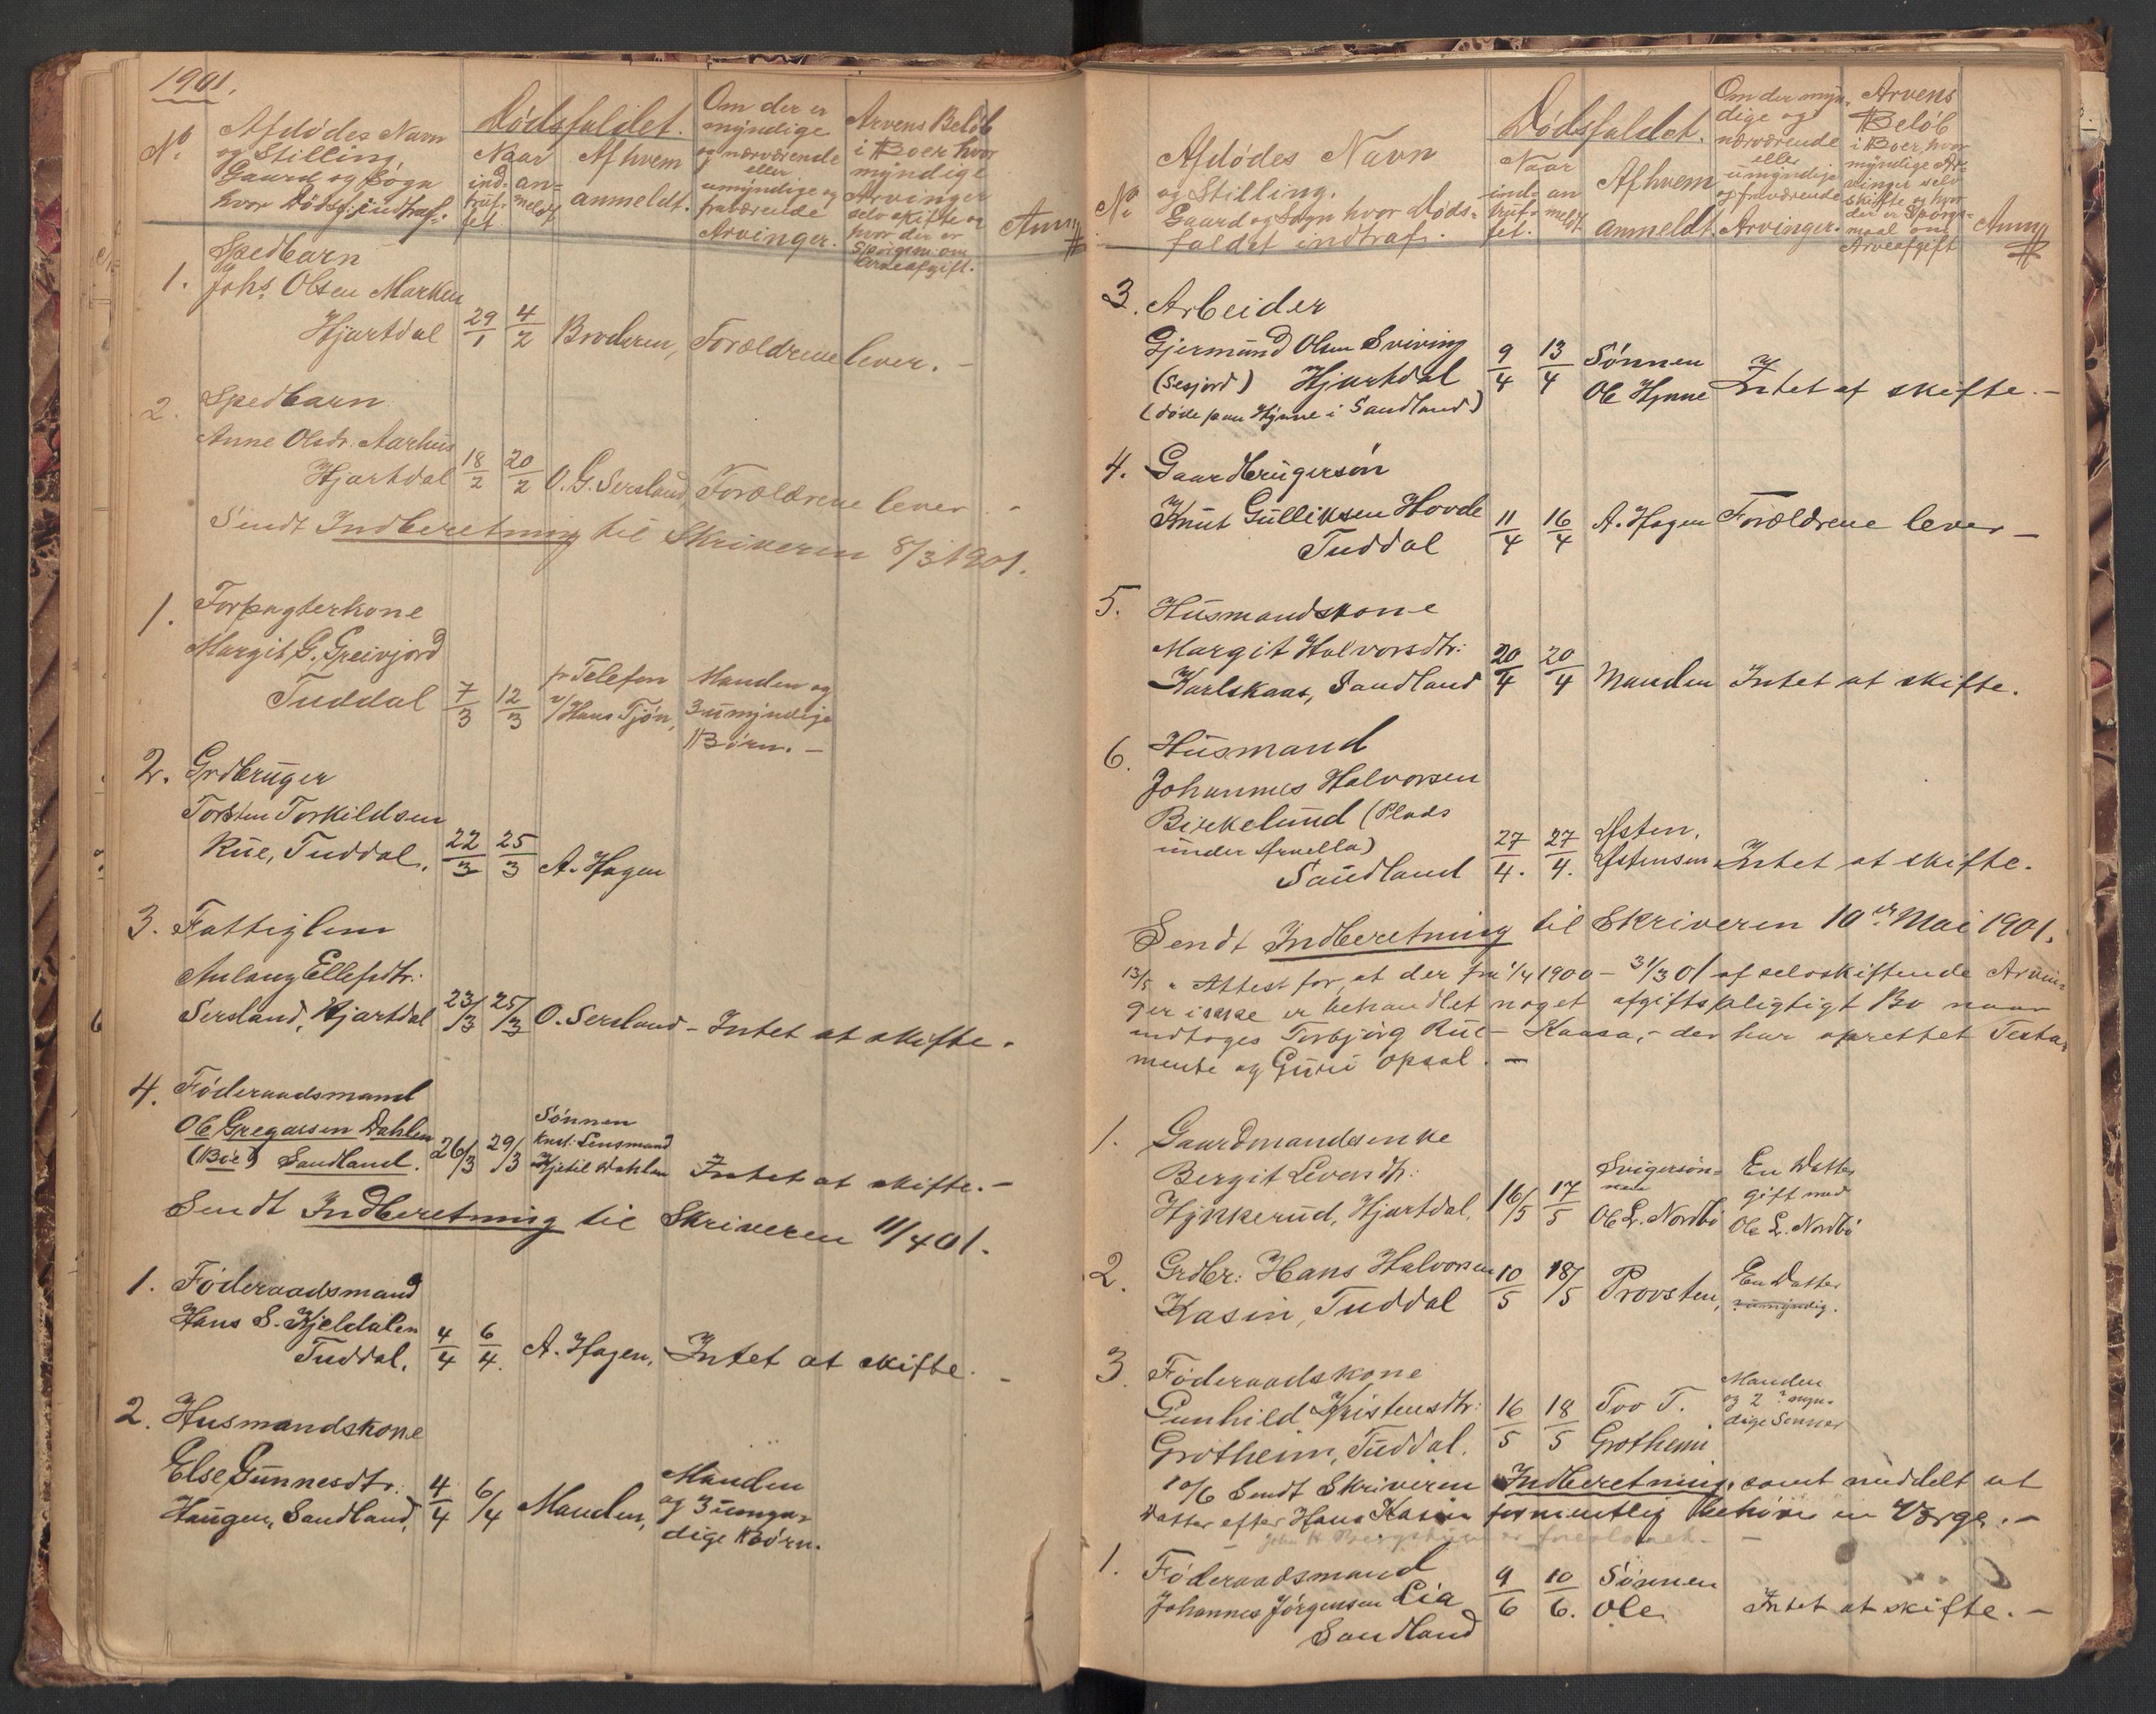 1901.
No.
Afdødes Navn
og Stilling,
Gaard og Sogn
hvor Dødsf: indtraf:
Dødsfaldet.
Naar
ind- an-
truf- meldt
fet.
Af hvem
anmeldt.
Om der er
myndige
og nærværende
eller
umyndige og
fraværende
Arvinger.
Arvens Beløb
i Boer hvor
myndige
Arvinger
selv skifte og
hvor der er
Spørgsm: om
Arveafgift.
Anm:
1. Spedbarn
Johs. Olsen Marken
Hjartdal 29/1 4/2 Broderen, Forældrene lever. –
2. Spedbarn
Anne Olsdr. Aarhus
Hjartdal 18/2 20/2 O. G. Sersland, Forældrene lever. –
Sendt Indberetning til Skriveren 8/3 1901.
1. Forpagterkone
Margit G. Greivjord
Tuddal 7/3 12/3 pr Telefon v/Hans Tjøn, Manden og
3 umyndige
Børn. –
2. Grdbruger
Torsten Torkildsen
Rue, Tuddal, 22/3 25/3 A. Hagen
3. Fattiglem
Aulaug Ellefsdtr:
Sersland, Hjartdal 23/3 25/3 O. Sersland – Intet at skifte.
4. Føderaadsmand
Ole Gregarsen Dahlen
(Bøe) Sandland. 26/3 29/3 Sønnen
Knst. Lensmand
Kjetil Dahlen Intet at skifte. –
Sendt Indberetning til Skriveren 11/4 01.
1. Føderaadsmand
Hans S. Kjeldalen
Tuddal, 4/4 6/4. A. Hagen, Intet at skifte. –
2. Husmandskone
Else Gunnesdtr.
Haugen, Sandland, 4/4 6/4 Manden, Manden
og 3 umyn-
dige Børn.
No.
Afdødes Navn
og Stilling.
Gaard og Sogn hvor Døds-
faldet indtraf.
Dødsfaldet.
Naar
ind- an
truf- meldt
fet.
Af hvem
anmeldt.
Om der myn-
dige og
nærværende
eller
umyndige
og fraværende
Arvinger.
Arvens
Beløb
i Boer, hvor
myndige Ar-
vinger selv
skifte og hvor
der er Spørgs-
maal om
Arveafgift
Anm:
3. Arbeider
Gjermund Olsen Sviving
(Sesjord) Hjartdal 9/4 13/4 Sønnen
Ole Hynne Intet at skifte. –
(døde paa Hynne i Sandland)
4. Gaardbrugersøn
Knut Gulliksen Hovde
Tuddal 11/4 16/4 A. Hagen Forældrene lever –
5. Husmandskone
Margit Halvorsdtr:
Karlskaas, Sandland 20/4 20/4 Manden Intet at skifte.
6. Husmand
Johannes Halvorsen
Birkelund (Plads
under
Sandland 27/4. 27/4. Østen.
Østensen Intet at skifte.
Sendt Indberetning til Skriveren 10er Mai 1901.
13/5 " Attest for, at der fra 1/4 1900 – 31/3 01 af selvskiftende Arvin-
ger ikke er behandlet noget afgiftspligtigt Bo naar
undtages Torbjørg Rue – Kaasa, – der har oprettet Testa-
mente og Guri Opsal. –
1. Gaardmandsenke
Bergit Leversdtr:
Hjukkerud, Hjartdal, 16/5 17/5 Svigersøn-
nen
Ole L. Nordbø En Datter
gift med
Ole L. Nordbø
2. Grdbr: Hans Halvorsen
Kasin, Tuddal 10/5 18/5 Provsten, En Datter
umyndig.
3. Føderaadskone
Gunhild Kristensdtr:
Grotheim, Tuddal. 16/5 18/5 Tov T.
Grotheim Manden
og 2 ? myn-
dige Sønner
10/6 Sendt Skriveren Indberetning, samt meddelt at
Datter efter Hans Kasin formentlig behøver en Værge. –
John H er foreslaaet. –
1. Føderaadsmand
Johannes Jørgensen Lia
Sandland 9/6 10/6. Sønnen
Ole. Intet at skifte. –